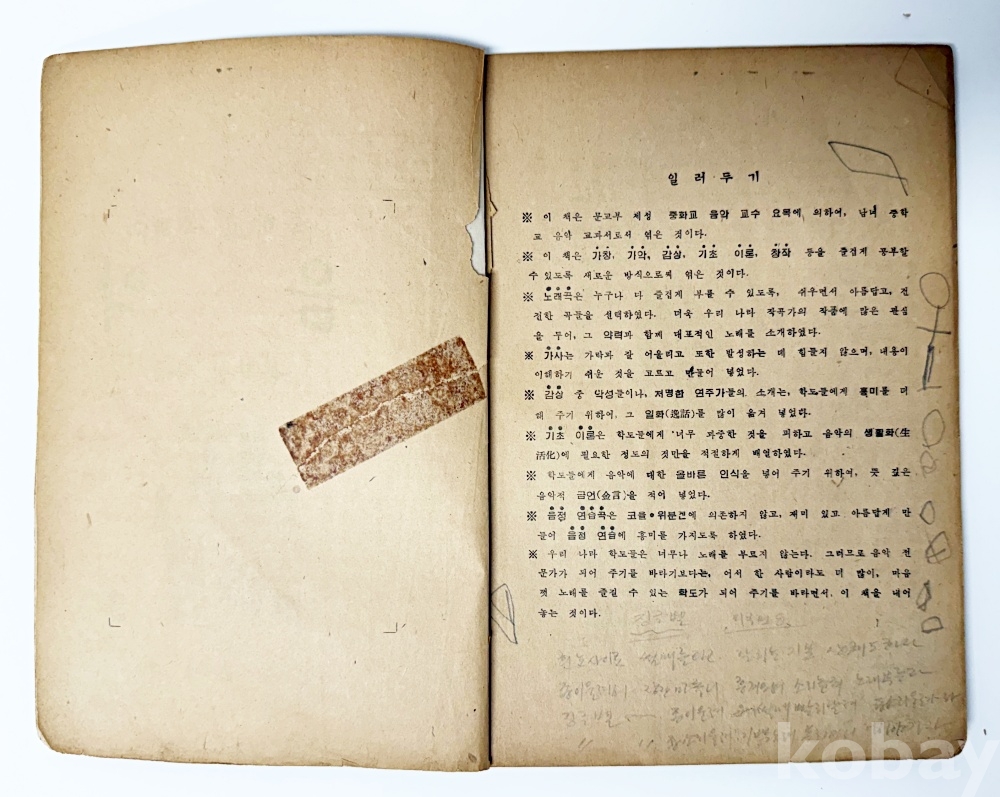 일러두기
※ 이 책은 문교부 제정 중학교 음악 교수 요목에 의하여, 남녀 중학
교 음악 교과서로서 엮은 것이다.
※ 이 책은 가창, 기악, 감상, 기초 이론, 창작 등을 즐겁게 공부할
수 있도록 새로운 방식으로써 엮은 것이다.
※ 노래곡은 누구나 다 즐겁게 부를 수 있도록, 쉬우면서 아름답고, 건
전한 곡들을 선택하였다. 더욱 우리 나라 작곡가의 작품에 많은 관심
을 두어, 그 약력과 함께 대표적인 노래를 소개하였다.
※ 가사는 가락과 잘 어울리고 또한 발성하는 데 힘들지 않으며, 내용이
이해하기 쉬운 것을 고르고 만들어 넣었다.
※ 감상 중 악성들이나, 저명한 연주가들의 소개는, 학도들에게 흥미를 더
해 주기 위하여, 그 일화(逸話)를 많이 옮겨 넣었다.
※ 기초 이론은 학도들에게 너무 과중한 것을 피하고 음악의 생활화(生
活化)에 필요한 정도의 것만을 적절하게 배열하였다.
※ 학도들에게 음악에 대한 올바른 인식을 넣어 주기 위하여, 뜻 깊은
음악적 금언(金言)을 적어 넣었다.
※ 음정 연습곡은 코을·위분겐에 의존하지 않고, 재미 있고 아름답게 만
들어 음정 연습에 흥미를 가지도록 하였다.
※ 우리 나라 학도들은 너무나 노래를 부르지 않는다. 그러므로 음악 전
문가가 되어 주기를 바라기보다는, 어서 한 사람이라도 더 많이, 마음
껏 노래를 즐길 수 있는 학도가 되어 주기를 바라면서, 이 책을 내어
놓는 것이다.
징글벨
kobay